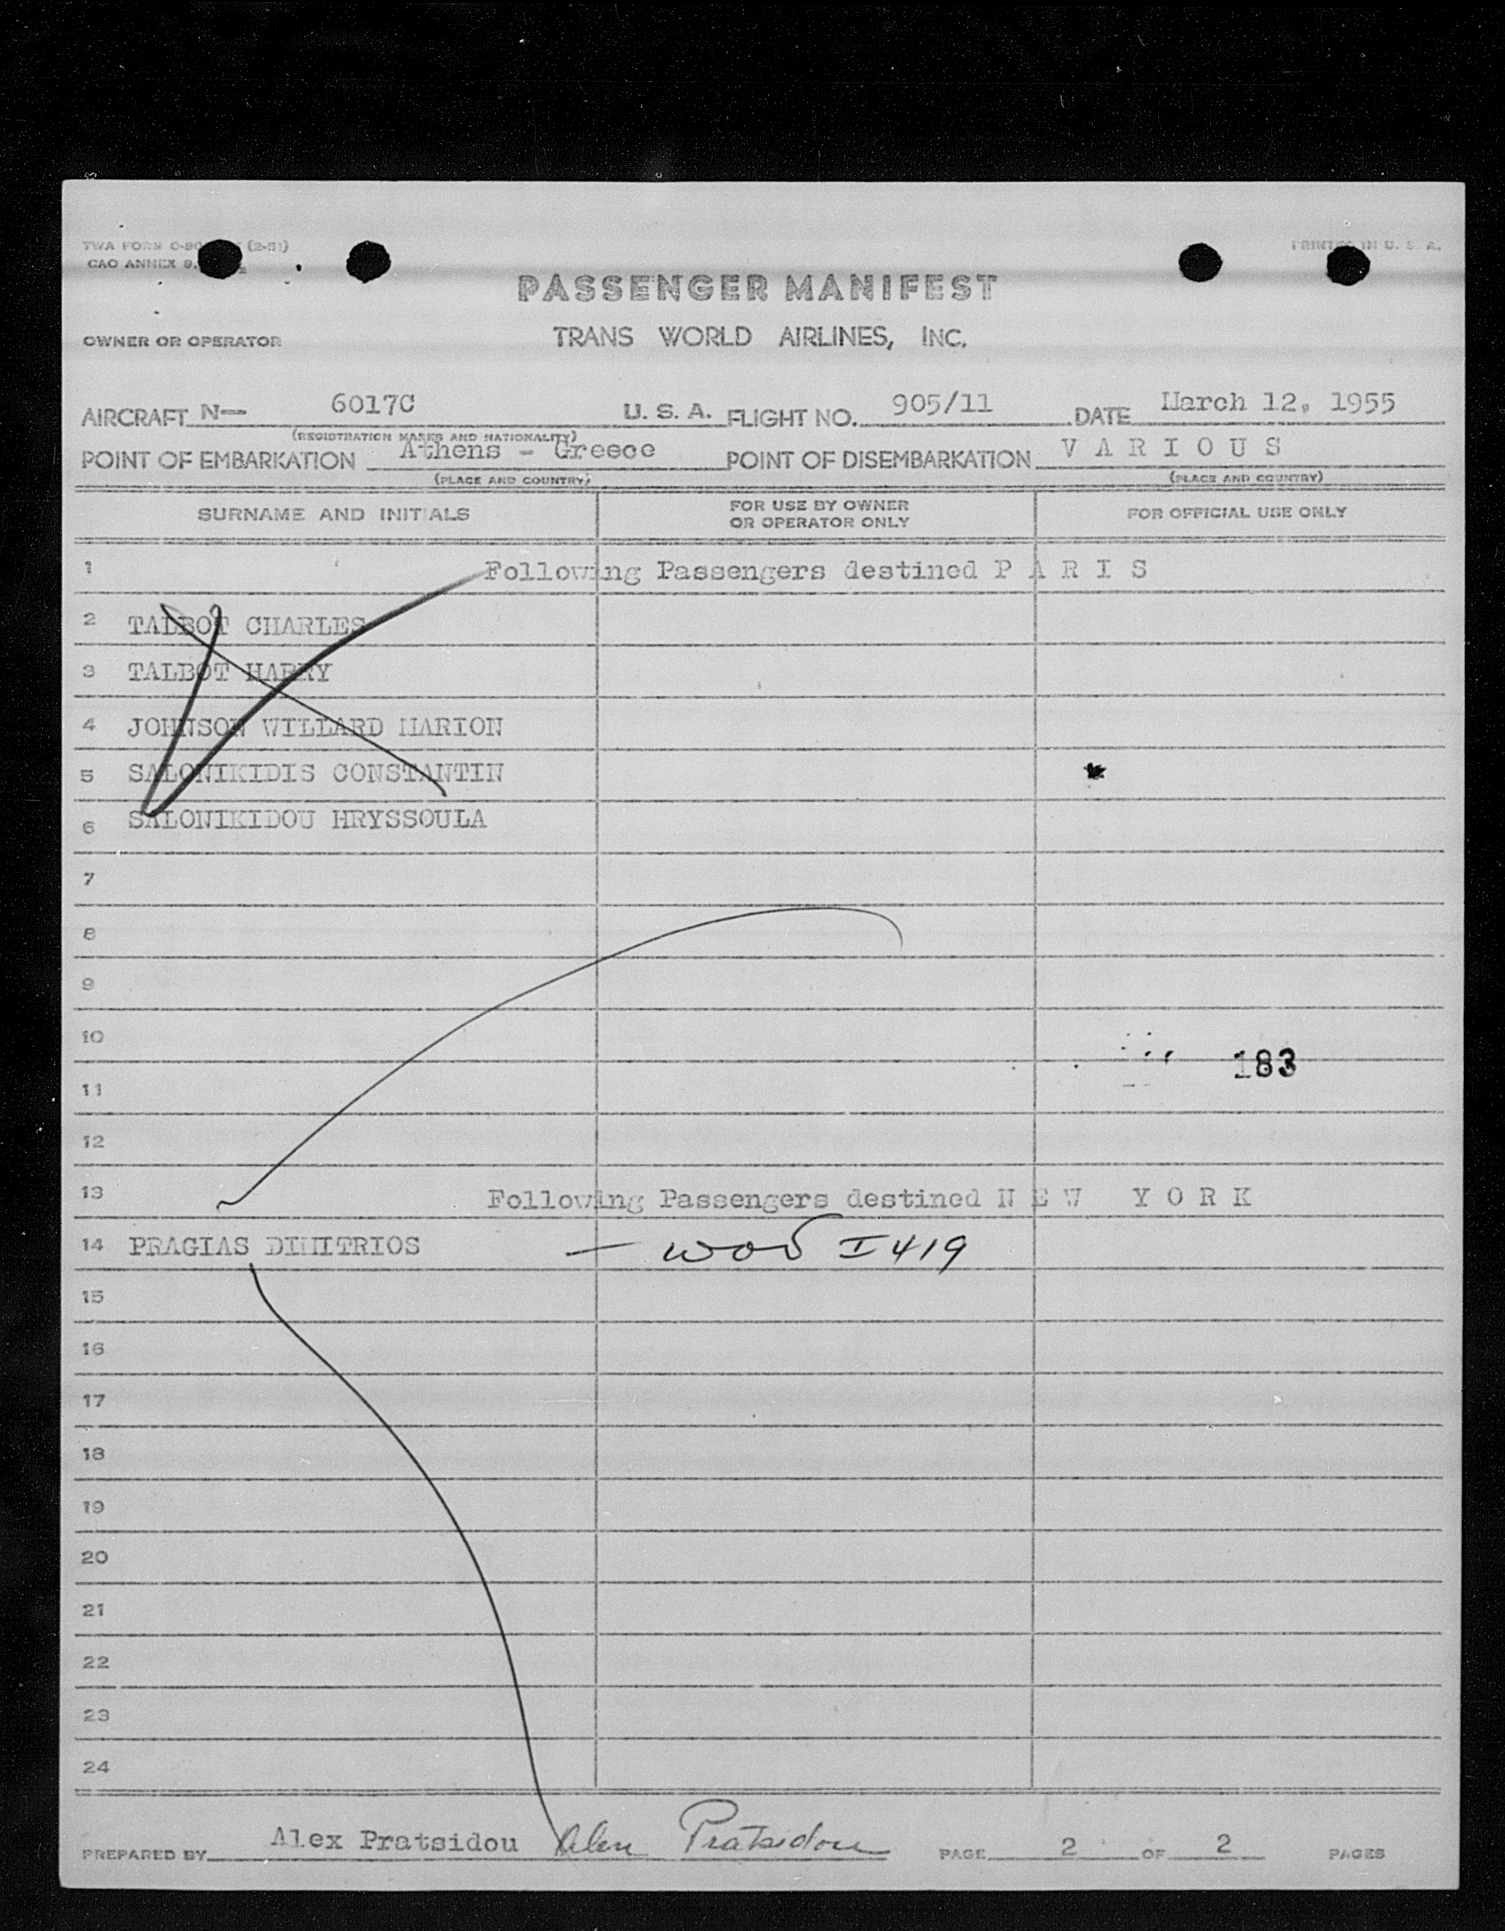 TWA FORM (2-51)
CAO ANNEX 9,
PRINTED IN U. S. A.
PASSENGER MANIFEST
OWNER OR OPERATOR TRANS WORLD AIRLINES, INC.
AIRCRAFT N— 6017C U. S. A. FLIGHT NO. 905/11 DATE March 12, 1955
(REGISTRATION MARKS AND NATIONALITY)
POINT OF EMBARKATION Athens - Greece POINT OF DISEMBARKATION V A R I O U S
(PLACE AND COUNTRY) (PLACE AND COUNTRY)
SURNAME AND INITIALS FOR USE BY OWNER OR OPERATOR ONLY FOR OFFICIAL USE ONLY
1 Following Passengers destined P A R I S
2 TALBOT CHARLES
3 TALBOT HARRY
4 JOHNSON WILLARD MARION
5 SALONIKIDIS CONSTANTIN
6 SALONIKIDOU HRYSSOULA
7
8
9
10
183
11
12
13 Following Passengers destined N E W Y O R K
14 PRAGIAS DIMITRIOS — I 419
15
16
17
18
19
20
21
22
23
24
PREPARED BY Alex Pratsidou Alex Pratsidou PAGE 2 OF 2 PAGES